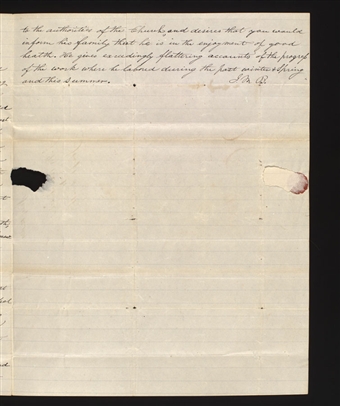 to the authorities of the Church, and desires that you would
inform his family that he is in the enjoyment of good
health. He gives exceedingly flattering accounts of the progress
of the work where he labored during the past winter & Spring
and this summer.